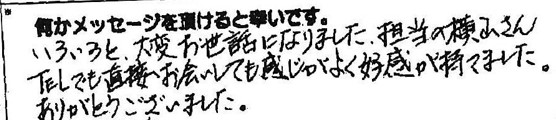 * 何かメッセージを頂けると幸いです。
いろいろと、大変お世話になりました。担当の横山さん
TELしても直接お会いしても感じがよく好感が持てました。
ありがとうございました。